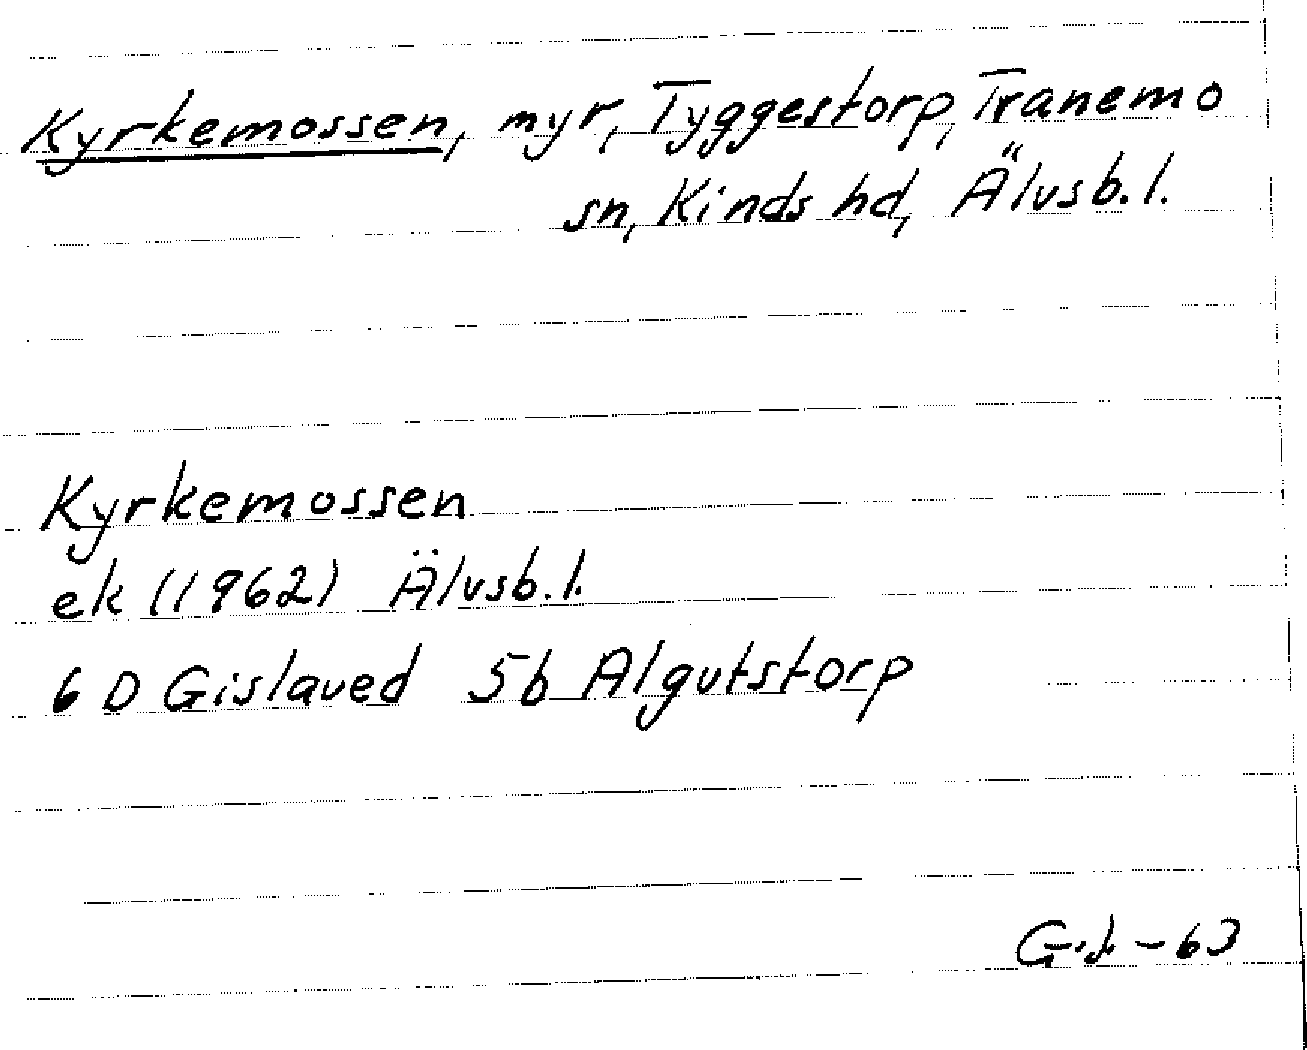 Kyrkemossen, myr, Tyggestorp, Tranemo
sn, Kinds hd, Älvsb. l.
Kyrkemossen
ek (1962) Älvsb. l.
6 D Gislaved 5b Algutstorp
-63